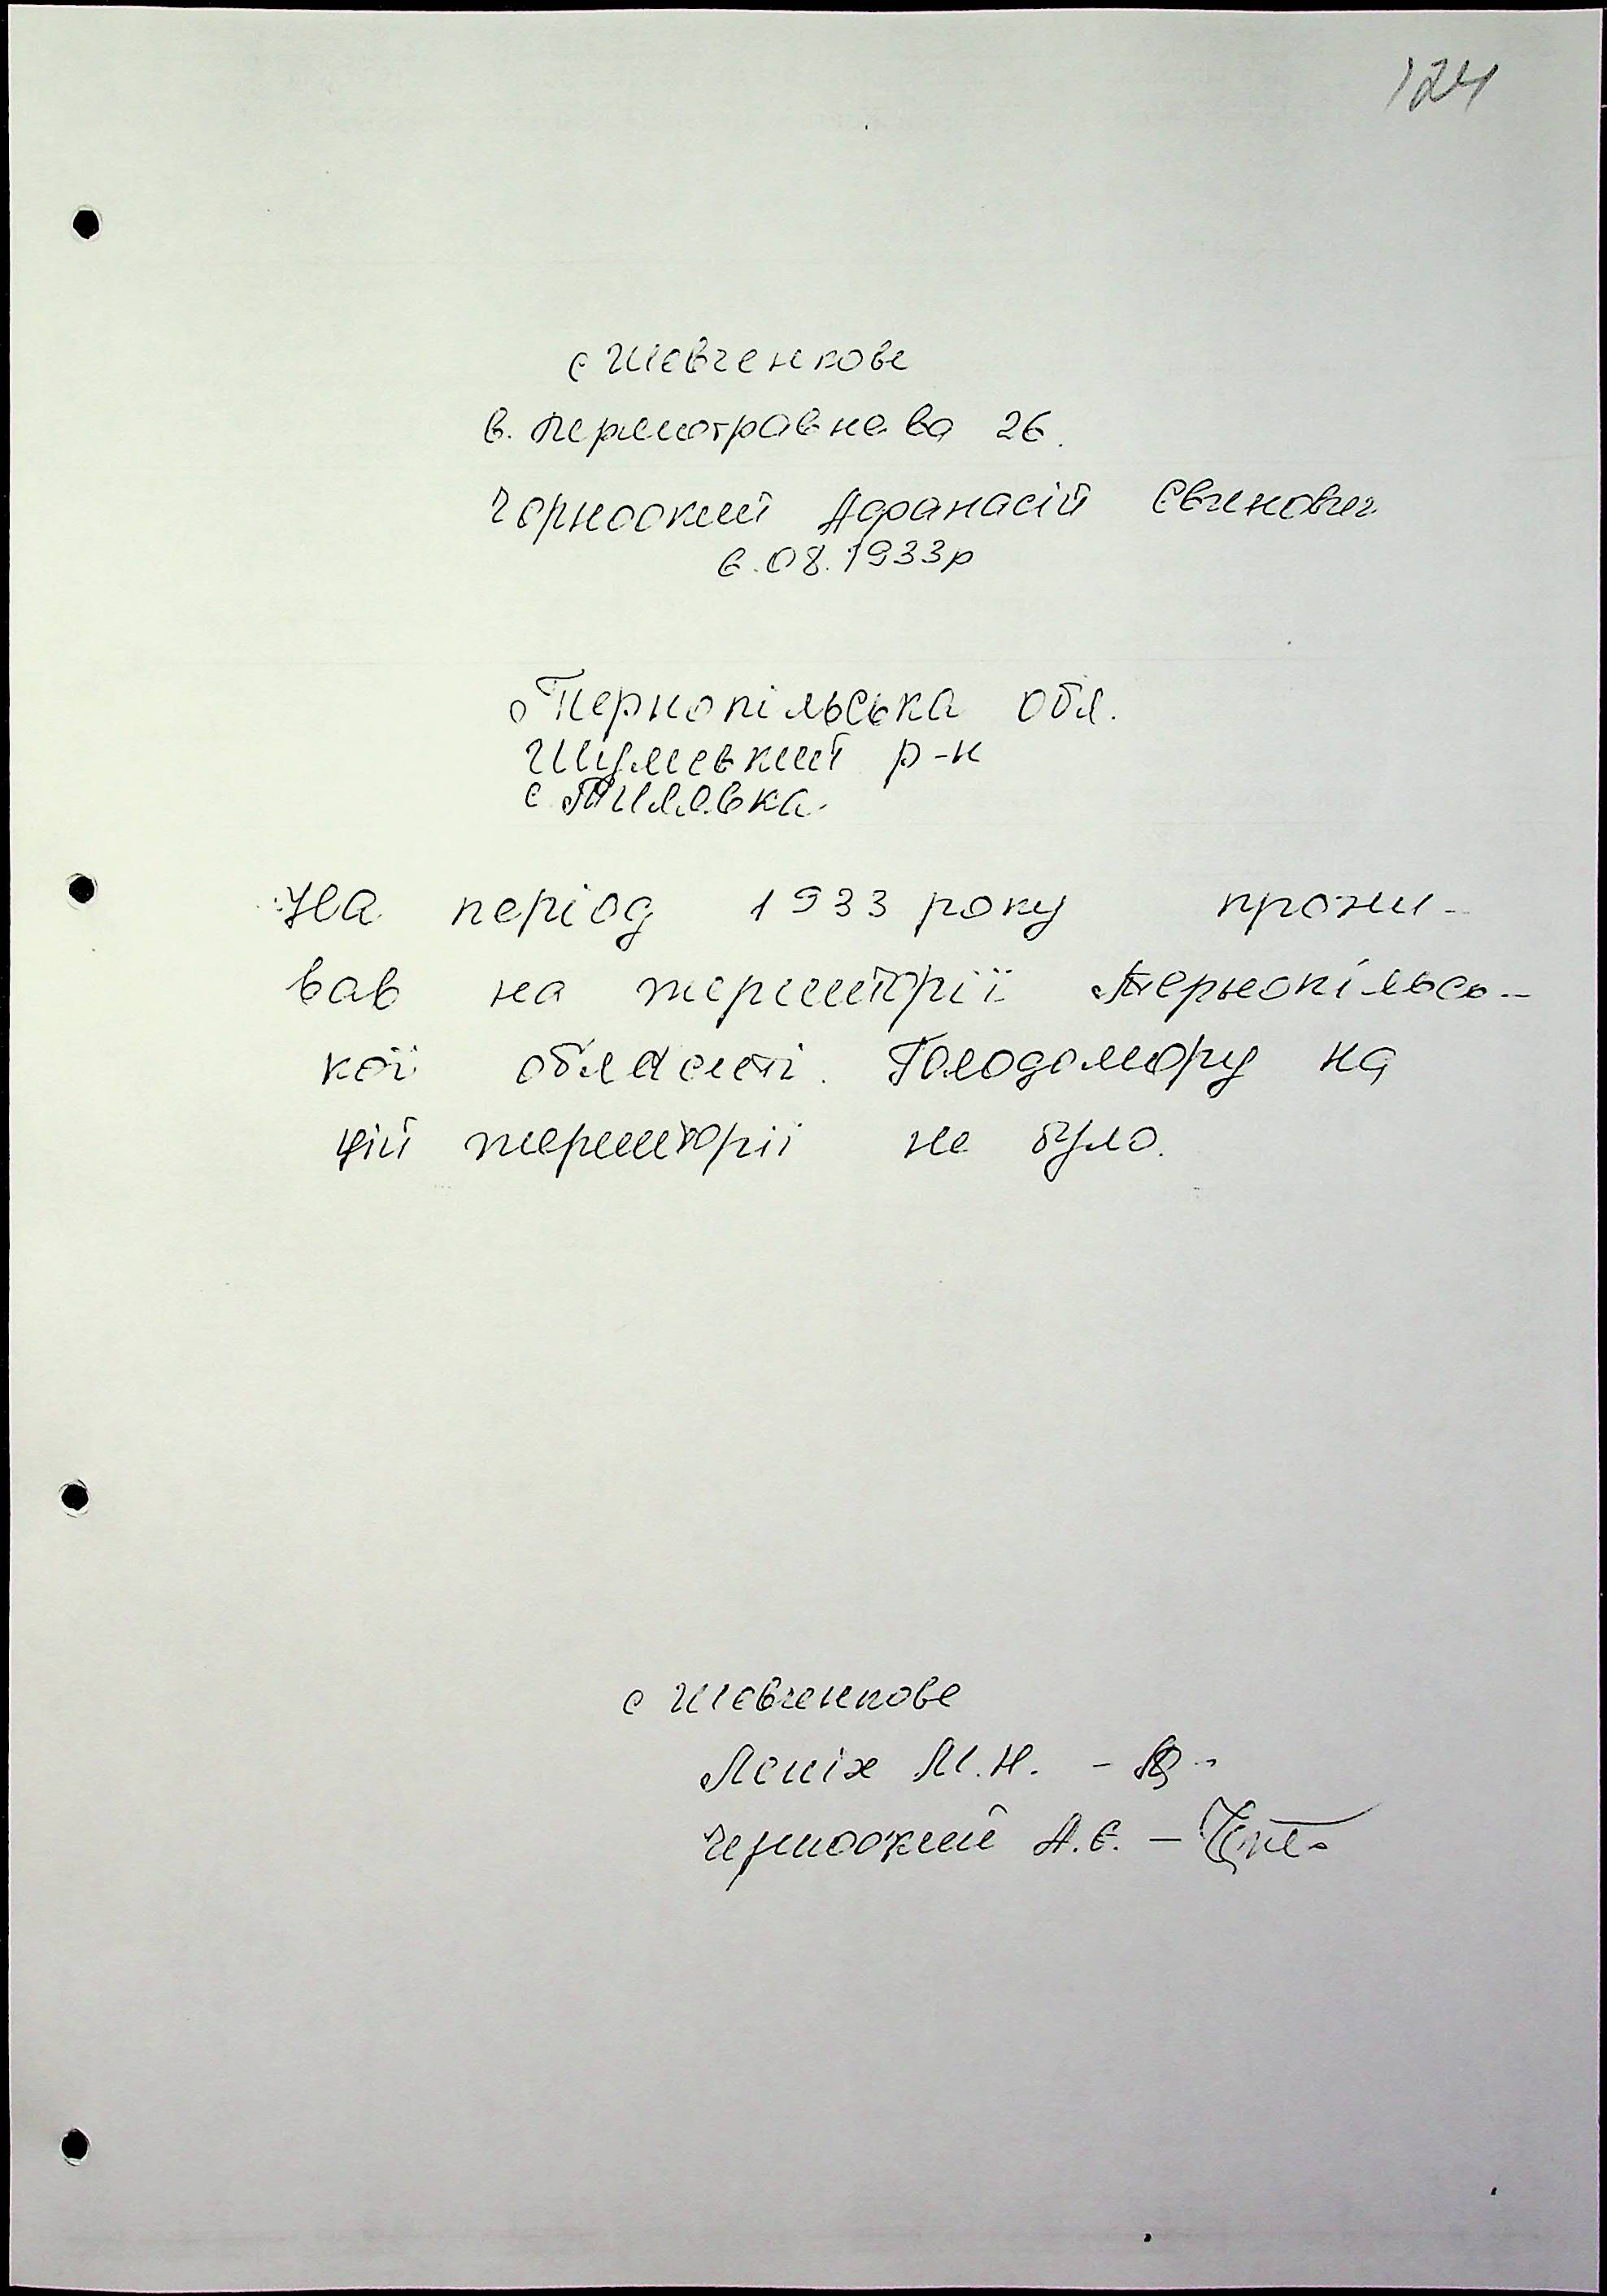 124
с Шевченкове
в. Першотравнева 26.
Чорноокий Афанасій Євгинович
6.08.1933р
Тернопільська обл.
Шумський р-н
с Тилявка.
На період 1933 року прожи-
вав на території Тернопільсь-
кої області. Голодомору на
цій території не було.
с Шевченкове
М.Н. -
Чорноокий А.Є. -